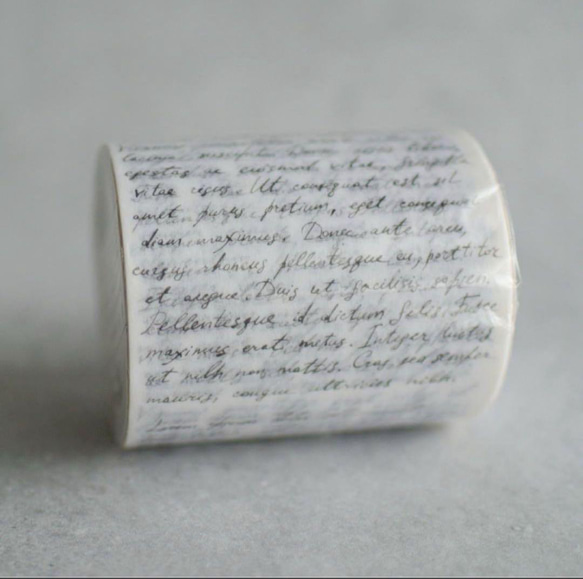 egestas ac euismod vitae,
vitae risus. Ut consequat est sit
amet purus pretium, eget consequat
diam maximus. Donec ante arcu,
rhoncus pellentesque a, porttitor
et augue. Duis ut facilisis sapien.
Pellentesque id dictum felis. Fusce
maximus erat metus. Integer
et nibh non mattis. Cras sed semper
mauris, congue ultricies nibh.